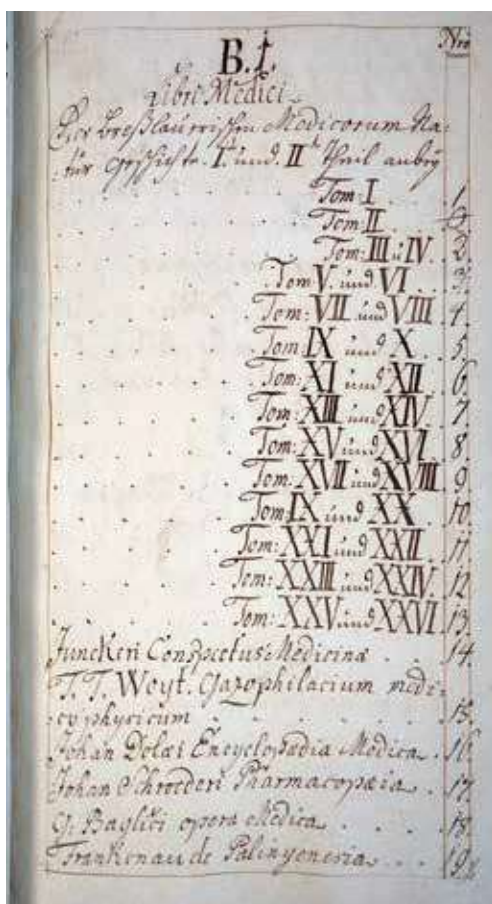 Nro
B. I.
Libri Medici
Der Breßlauerischen Medicorum Na:
:tur Geschichte. I. und. II. Theil anbey
Tom: I . 1
Tom: II
Tom: III u IV. 2.
Tom V. und VI 3.
Tom: VII und VIII 4.
Tom: IX und X. 5.
Tom: XI und XII 6
Tom: XIII und XIV 7
Tom: XV und XVI 8
Tom: XVII und XVIII 9
Tom: IX und XX . 10.
Tom: XXI und XXII 11.
Tom: XXIII und XXIV. 12
Tom: XXV und XXVI 13.
Junckeri Conspectus Medicinæ . 14.
T. T. Woyt. Gazophilacium medi:
:co physicum . . . . . 15.
Johan Dolæi Encyclopædia Medica. . 16.
Johan Schroederi Pharmacopæia . 17.
G. Baglivi opera Medica . . . . 18.
Frankenau de Palingenesia . . . 19.